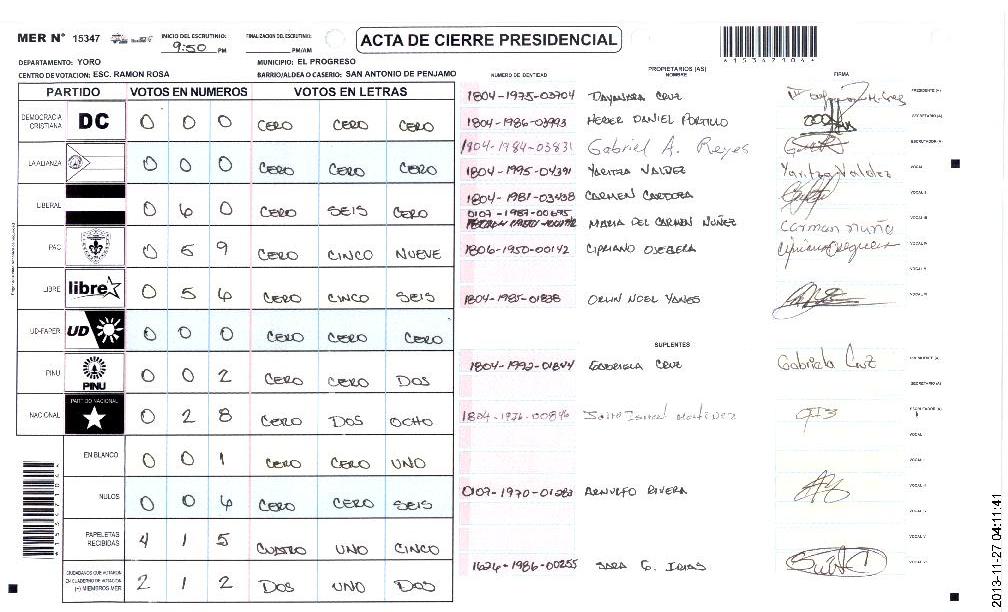 MER Nº 15347
INICIO DEL ESCRUTINIO: 9:50 PM
FINALIZACION DEL ESCRUTINIO: PM/AM
ACTA DE CIERRE PRESIDENCIAL
DEPARTAMENTO: YORO
MUNICIPIO: EL PROGRESO
CENTRO DE VOTACION: ESC. RAMON ROSA
BARRIO/ALDEA O CASERIO: SAN ANTONIO DE PENJAMO
PARTIDO VOTOS EN NUMEROS VOTOS EN LETRAS
DEMOCRACIA CRISTIANA DC 0 0 0 CERO CERO CERO
LA ALIANZA 0 0 0 CERO CERO CERO
LIBERAL 0 6 0 CERO SEIS CERO
PAC 0 5 9 CERO CINCO NUEVE
LIBRE libre 0 5 6 CERO CINCO SEIS
UD-FAPER UD 0 0 0 CERO CERO CERO
PINU PINU 0 0 2 CERO CERO DOS
NACIONAL PARTIDO NACIONAL 0 2 8 CERO DOS OCHO
EN BLANCO 0 0 1 CERO CERO UNO
NULOS 0 0 6 CERO CERO SEIS
PAPELETAS RECIBIDAS 4 1 5 CUATRO UNO CINCO
CIUDADANOS QUE VOTARON EN CUADERNO DE VOTACION (+) MIEMBROS MER 2 1 2 DOS UNO DOS
NUMERO DE IDENTIDAD
PROPIETARIOS (AS)
NOMBRE
FIRMA
1804-1975-03704 DAYANARA CRUZ PRESIDENTE (A)
1804-1986-03993 HEBER DANIEL PORTILLO SECRETARIO (A)
1804-1984-03831 Gabriel A. Reyes ESCRUTADOR (A)
1804-1995-04391 YARITZA VALDEZ Yaritza Valdez VOCAL I
1804-1981-03438 CARMEN CARDONA VOCAL II
0107-1987-00695 MARIA DEL CARMEN NUÑEZ Carman nuñe VOCAL III
1806-1950-00142 CIPRIANO VOCAL IV
VOCAL V
1804-1985-01838 ORLIN NOEL YANES VOCAL VI
SUPLENTES
1804-1992-01844 GABRIELA CRUZ Gabriela Cruz PRESIDENTE (A)
SECRETARIO (A)
1804-1976-00896 Ismael Martinez ESCRUTADOR (A)
VOCAL I
0107-1970-01283 ARNULFO RIVERA VOCAL II
VOCAL V
1626-1986-00255 SARA G. IRIAS
2013-11-27 04:11:41